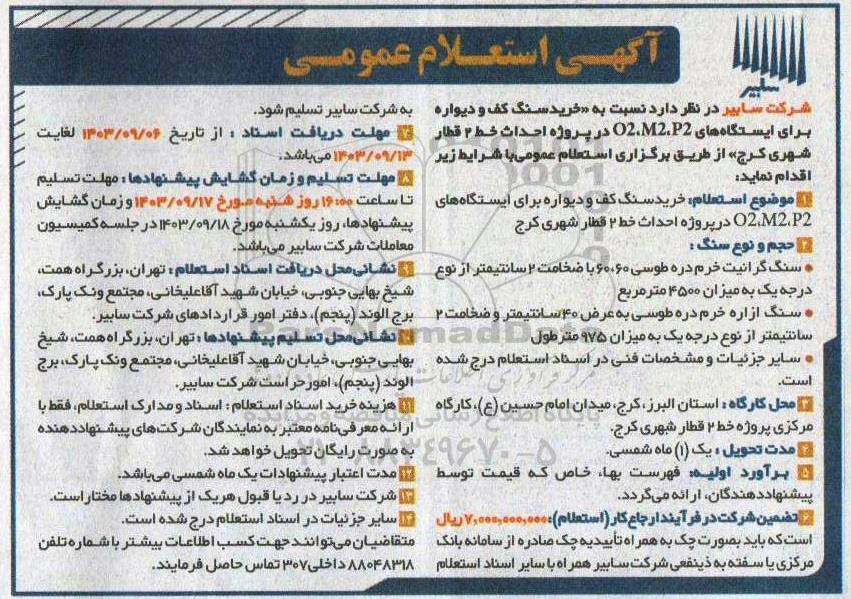 سابیر
آگهی استعلام عمومی
شرکت سابیر در نظر دارد نسبت به «خرید سنگ کف و دیواره
برای ایستگاه‌های O2،M2،P2 در پروژه احداث خط ۲ قطار
شهری کرج» از طریق برگزاری استعلام عمومی با شرایط زیر
اقدام نماید:
۱ موضوع استعلام: خرید سنگ کف و دیواره برای ایستگاه‌های
O2،M2،P2 در پروژه احداث خط ۲ قطار شهری کرج
۲ حجم و نوع سنگ :
● سنگ گرانیت خرم دره طوسی ۶۰،۶۰ با ضخامت ۲ سانتیمتر از نوع
درجه یک به میزان ۴۵۰۰ مترمربع
● سنگ ازاره خرم دره طوسی به عرض ۴۰ سانتیمتر و ضخامت ۲
سانتیمتر از نوع درجه یک به میزان ۹۷۵ مترطول
● سایر جزئیات و مشخصات فنی در اسناد استعلام درج شده
است.
۳ محل کارگاه : استان البرز، کرج، میدان امام حسین (ع)، کارگاه
مرکزی پروژه خط ۲ قطار شهری کرج.
۴ مدت تحویل : یک (۱) ماه شمسی.
۵ برآورد اولیه: فهرست بها، خاص که قیمت توسط
پیشنهاددهندگان، ارائه می‌گردد.
۶ تضمین شرکت در فرآیند ارجاع کار (استعلام): ۷,۰۰۰,۰۰۰,۰۰۰ ریال
است که باید بصورت چک به همراه تأییدیه چک صادره از سامانه بانک
مرکزی یا سفته به ذینفعی شرکت سابیر همراه با سایر اسناد استعلام
به شرکت سابیر تسلیم شود.
۷ مهلت دریافت اسناد : از تاریخ ۱۴۰۳/۰۹/۰۶ لغایت
۱۴۰۳/۰۹/۱۳ می‌باشد.
۸ مهلت تسلیم و زمان گشایش پیشنهادها : مهلت تسلیم
تا ساعت ۱۶:۰۰ روز شنبه مورخ ۱۴۰۳/۰۹/۱۷ و زمان گشایش
پیشنهادها، روز یکشنبه مورخ ۱۴۰۳/۰۹/۱۸ در جلسه کمیسیون
معاملات شرکت سابیر می‌باشد.
۹ نشانی محل دریافت اسناد استعلام : تهران، بزرگراه همت،
شیخ بهایی جنوبی، خیابان شهید آقاعلیخانی، مجتمع ونک پارک،
برج الوند (پنجم)، دفتر امور قراردادهای شرکت سابیر.
۱۰ نشانی محل تسلیم پیشنهادها : تهران، بزرگراه همت، شیخ
بهایی جنوبی، خیابان شهید آقاعلیخانی، مجتمع ونک پارک، برج
الوند (پنجم)، امور حراست شرکت سابیر.
۱۱ هزینه خرید اسناد استعلام : اسناد و مدارک استعلام، فقط با
ارائه معرفی‌نامه معتبر به نمایندگان شرکت‌های پیشنهاددهنده
به صورت رایگان تحویل خواهد شد.
۱۲ مدت اعتبار پیشنهادات یک ماه شمسی می‌باشد.
۱۳ شرکت سابیر در رد یا قبول هریک از پیشنهادها مختار است.
۱۴ سایر جزئیات در اسناد استعلام درج شده است.
متقاضیان می‌توانند جهت کسب اطلاعات بیشتر با شماره تلفن
۸۸۰۴۸۳۱۸ داخلی ۳۰۷ تماس حاصل فرمایند.
ParsNamadData
۰۲۱-۸۸۳۴۹۶۷۰-۵